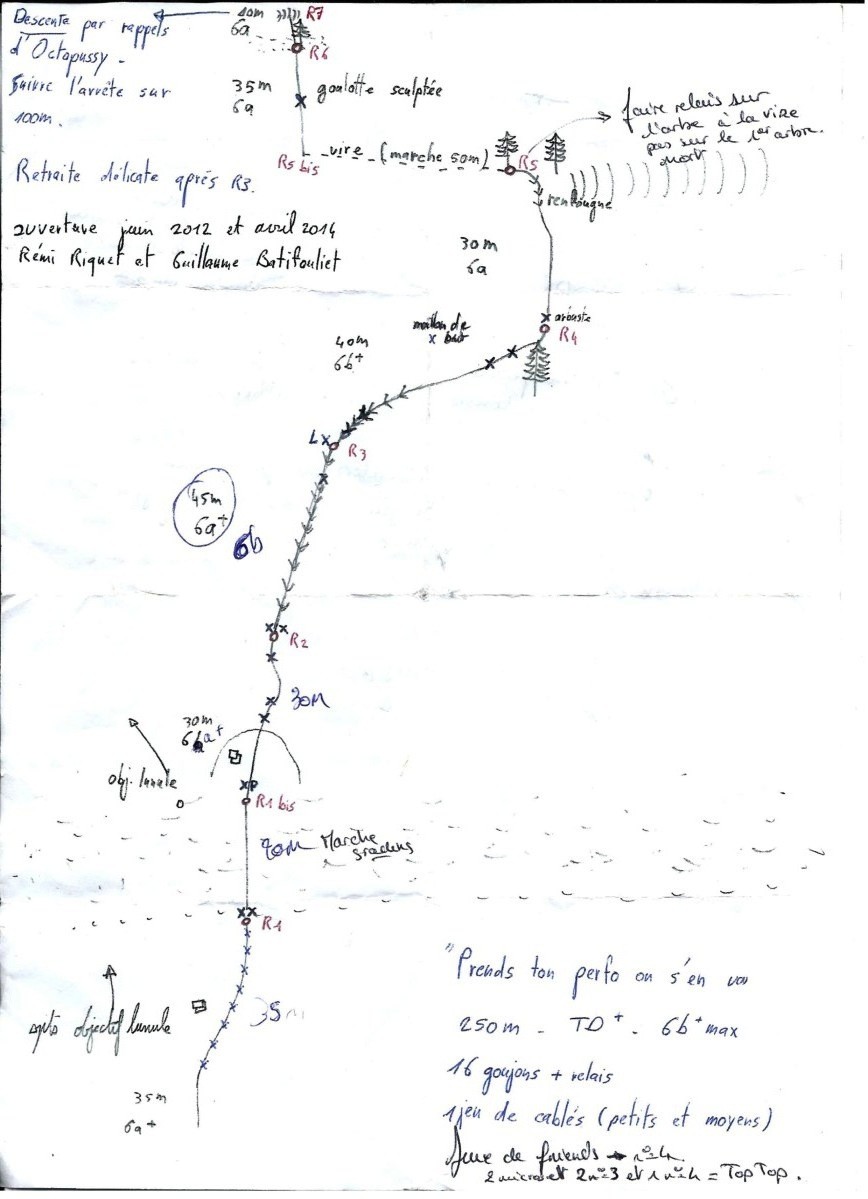 Descente par rappels
d'Octopussy.
Suivre l'arrête sur
100m.
Retraite délicate après R3.
ouverture juin 2012 et avril 2014
Rémi Riquet et Guillaume Batifouliet
10m
6a
R7
R6
35m
6a
goulotte sculptée
R5 bis
vire (marche 50m)
R5
faire relais sur
l'arbre à la vire
pas sur le 1er arbre
mort
renfougne
30m
6a
arbuste
R4
maillon de
but
40m
6b+
L
R3
45m
6a+
6b
R2
30m
30m
6a+
obj. lunule
P
R1 bis
70m Marche
gradins
R1
35m
après objectif lunule
35m
6a+
"Prends ton perfo on s'en va
250m - TD+ - 6b+ max
16 goujons + relais
1 jeu de cablés (petits et moyens)
Jeux de friends → n°4
2 micro et 2 n°3 et 1 n°4 = Top Top.